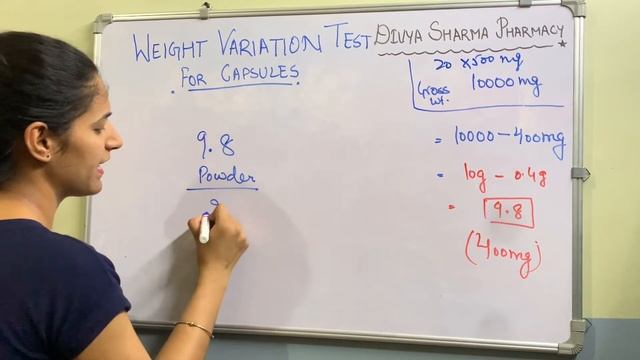 WEIGHT VARIATION TEST
FOR CAPSULES
DIVYA SHARMA PHARMACY
20 x 500 mg
Gross wt. 10000 mg
= 10000 - 400mg
= 10g - 0.4g
= 9.8
(400mg)
9.8
Powder